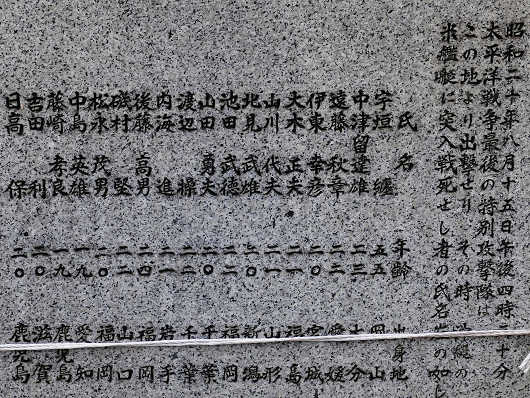 昭和二十年八月十五日午後四時 十分
太平洋戦争最後の特別攻撃隊は
この地より出撃せり その時 縄の
米艦艇に突入戦死せし者の氏名 の如し
氏名 年齢 出身地
宇垣 纏 五五 岡山
中津留達雄 二三 大分
遠藤 秋章 二二 愛媛
伊東 幸彦 二〇 宮城
大木 正夫 二一 福島
山川 代夫 二一 山形
北見 武雄 二〇 新潟
池田 武徳 二二 福岡
山田 勇夫 二〇 千葉
渡辺 操 二二 千葉
内海 進 二一 岩手
後藤 高男 二四 福岡
磯村 堅 二二 山口
松永 茂男 二〇 福岡
中島 英雄 一九 愛知
藤崎 孝良 一九 鹿児島
吉田 利 二〇 滋賀
日高 保 二〇 鹿児島